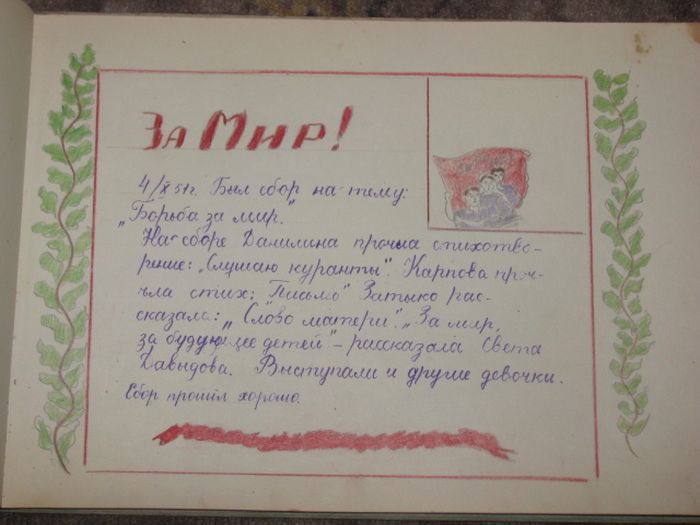 За Мир!
4/X 51г. Был сбор на тему:
„Борьба за мир."
На сборе Данилина прочла стихотво-
рение: „Слушаю куранты". Карпова проч-
чла стих: „Письмо" Затыко рас-
сказала: „Слово матери". „За мир,
за будующее детей" - рассказала Света
Давыдова. Выступали и другие девочки.
Сбор прошёл хорошо.